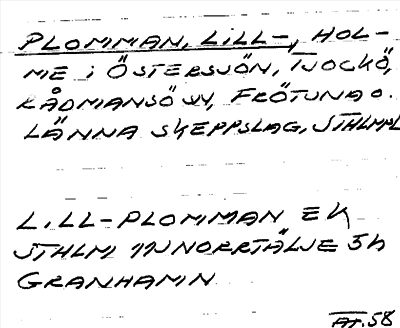 PLOMMAN, LILL-, HOL-
ME i ÖSTERSJÖN, TJOCKÖ,
RÅDMANSÖ SN, FRÖTUNA O.
LÄNNA SKEPPSLAG, STHLM L
LILL-PLOMMAN EK
STHLM 11J NORRTÄLJE 5h
GRANHAMN
AT.58